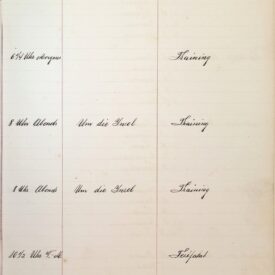 6 1/4 Uhr Morgens Training
8 Uhr Abends Um die Insel Training
8 Uhr Abends Um die Insel Training
10 1/2 Uhr V. M.